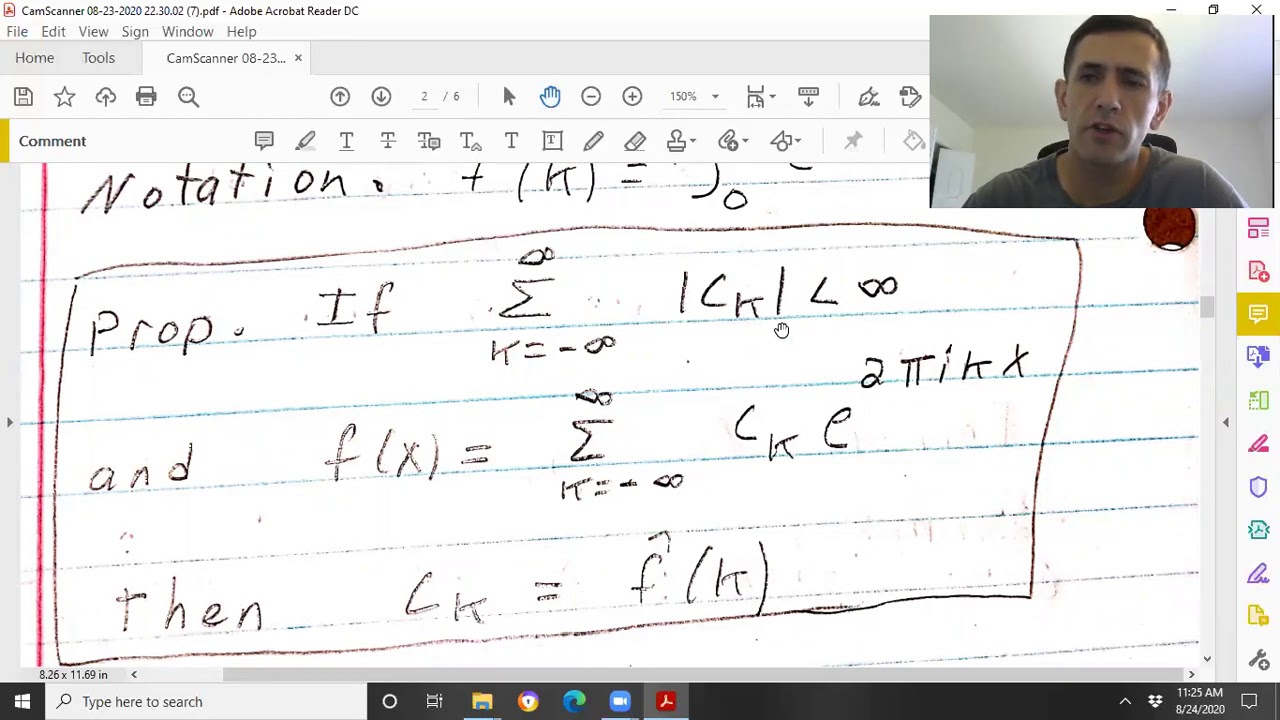 CamScanner 08-23-2020 22.30.02 (7).pdf - Adobe Acrobat Reader DC
File Edit View Sign Window Help
Home Tools CamScanner 08-23...
2 / 6 150%
Comment
Notation. f (k) = ∫₀
Prop. If ∑_{k=-∞}^{∞} |C_k| < ∞
and f(x) = ∑_{k=-∞}^{∞} C_k e^{2πikx}
then C_k = f̂(k)
8.50 x 11.00 in
Type here to search
11:25 AM
8/24/2020